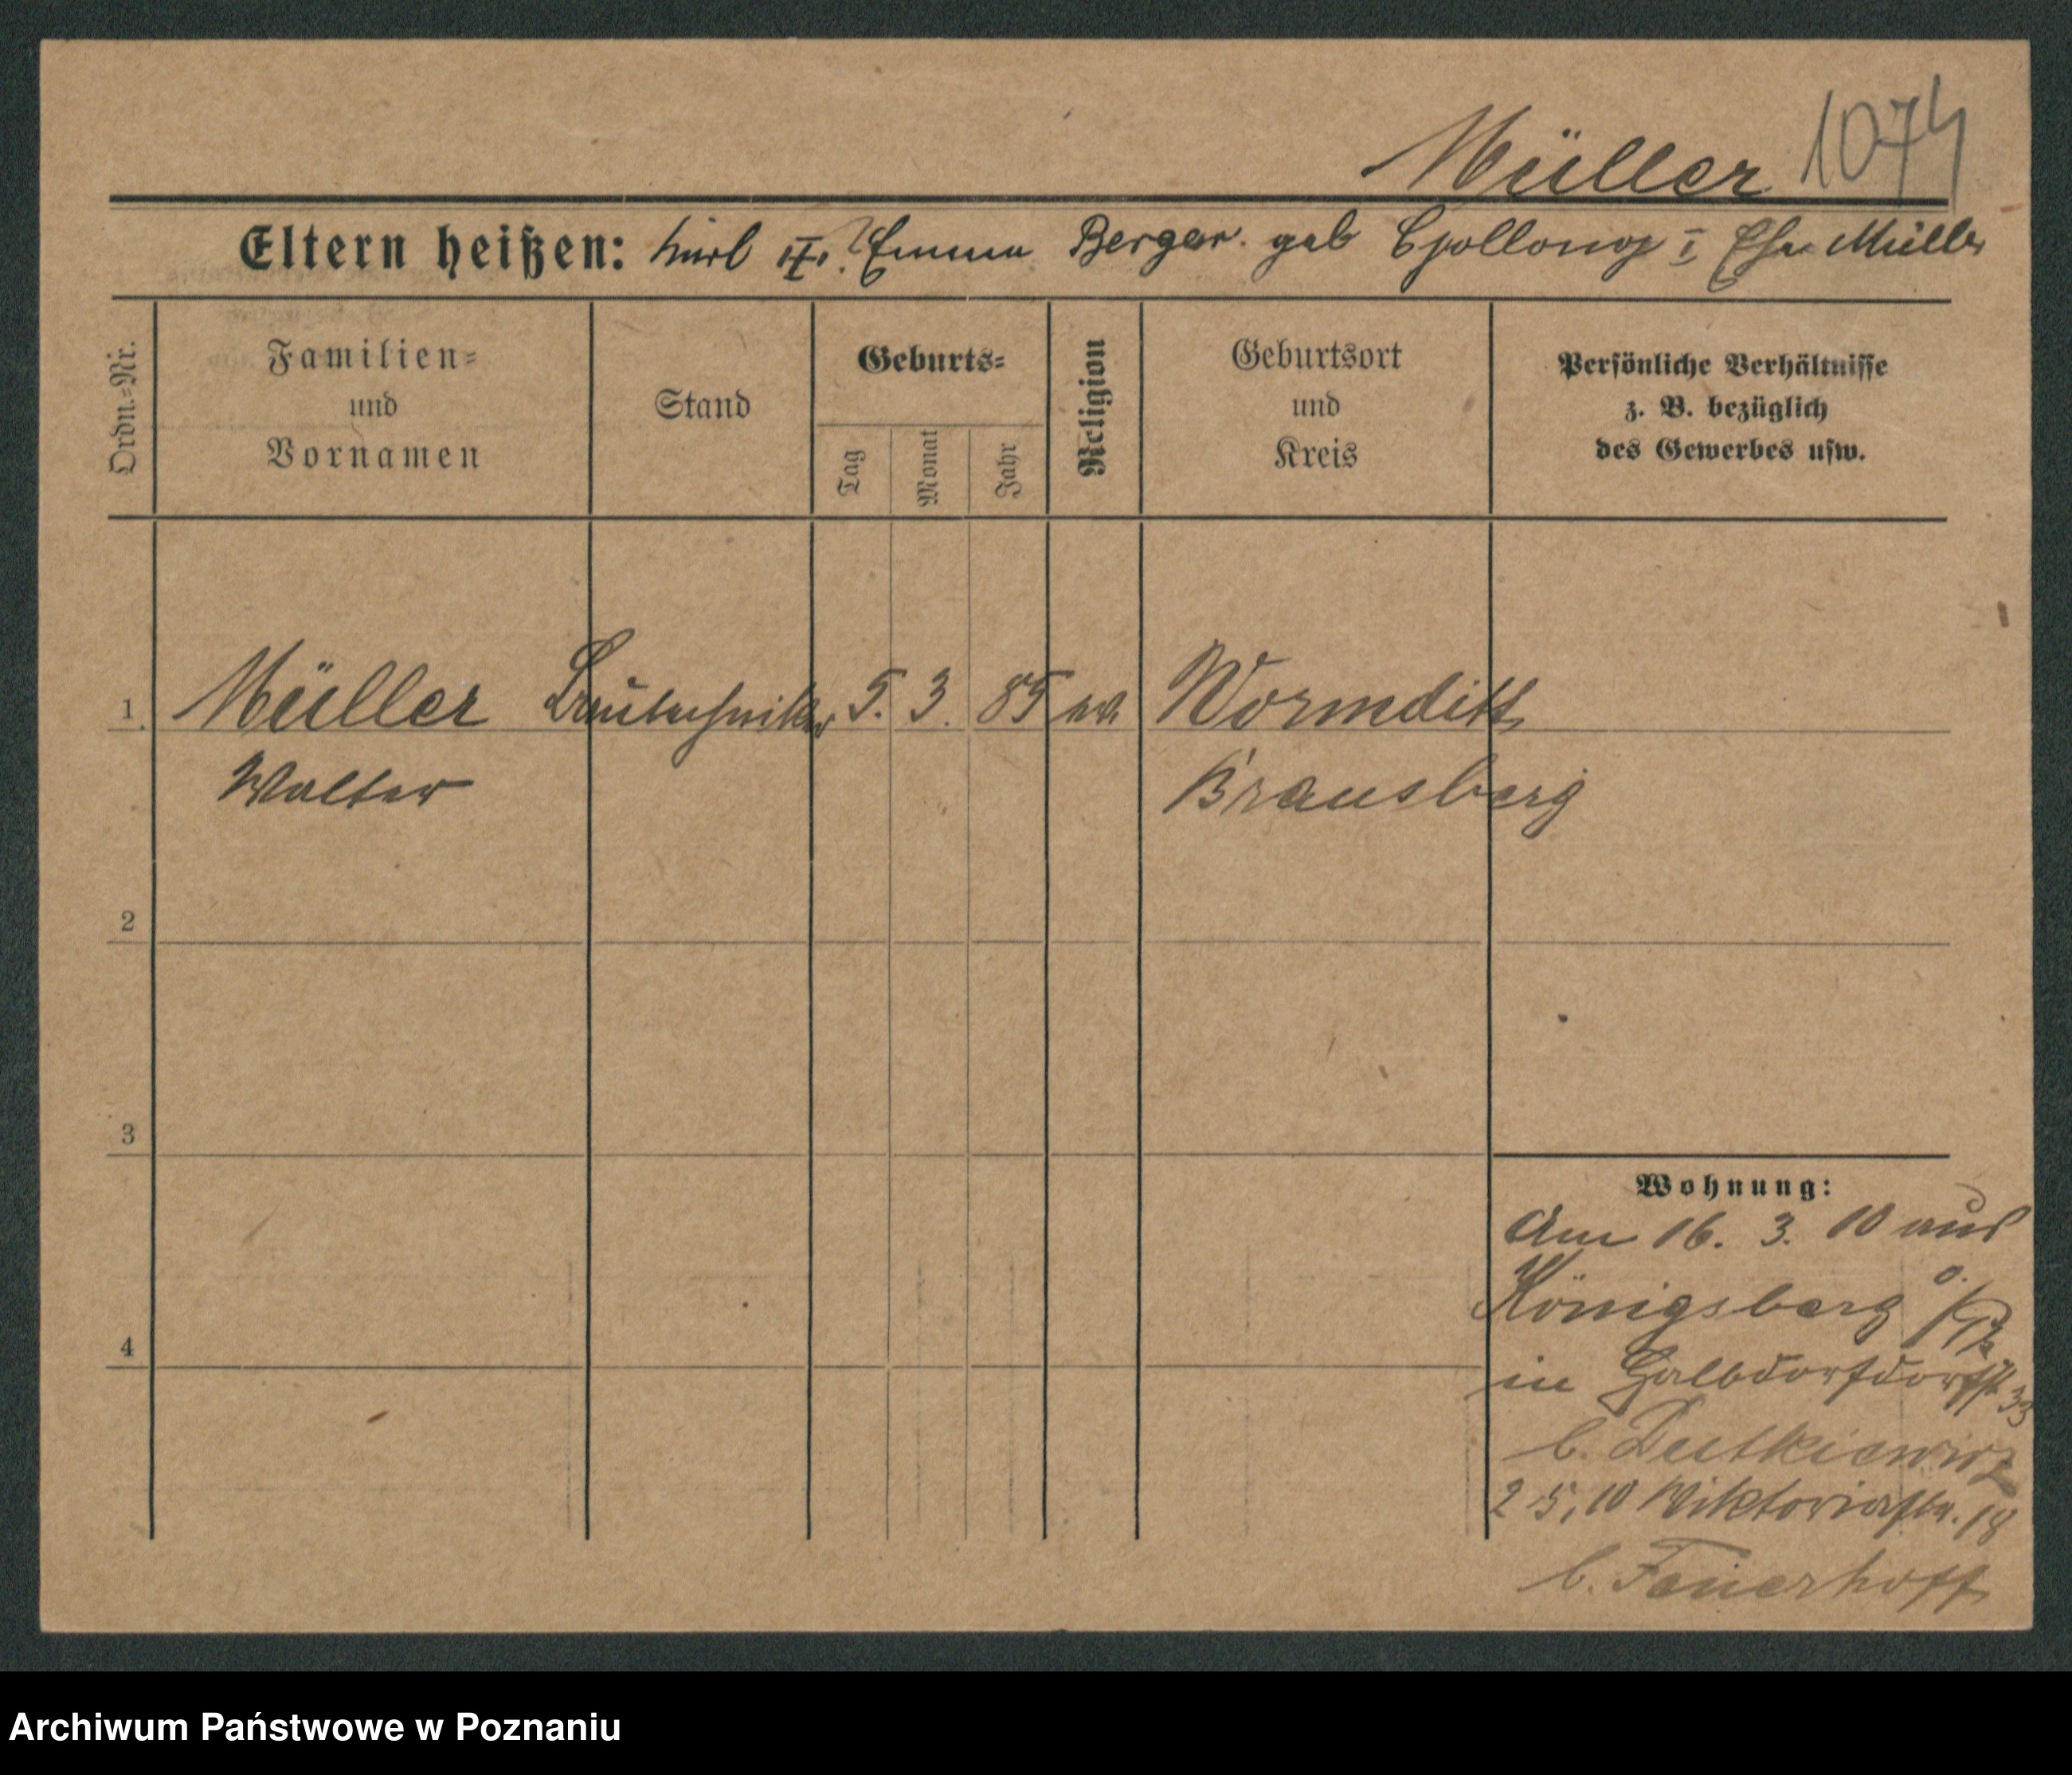 Müller 1074
Eltern heißen: Karl u. Emma Berger. geb I Ehe Müller
Ordn.=Nr.
Familien=
und
Vornamen
Stand
Geburts=
Tag
Monat
Jahr
Religion
Geburtsort
und
Kreis
Persönliche Verhältnisse
z. B. bezüglich
des Gewerbes usw.
1. Müller Bautechniker 5. 3. 85 ev. Wormditt
Walter Braunsberg
2
3
Wohnung:
Am 16. 3. 10 aus
Königsberg
4
in Halbdorfstr 33
b. Dutkiewicz
2 5, 10 Viktoriastr. 18
b. Feuerhoff
Archiwum Państwowe w Poznaniu